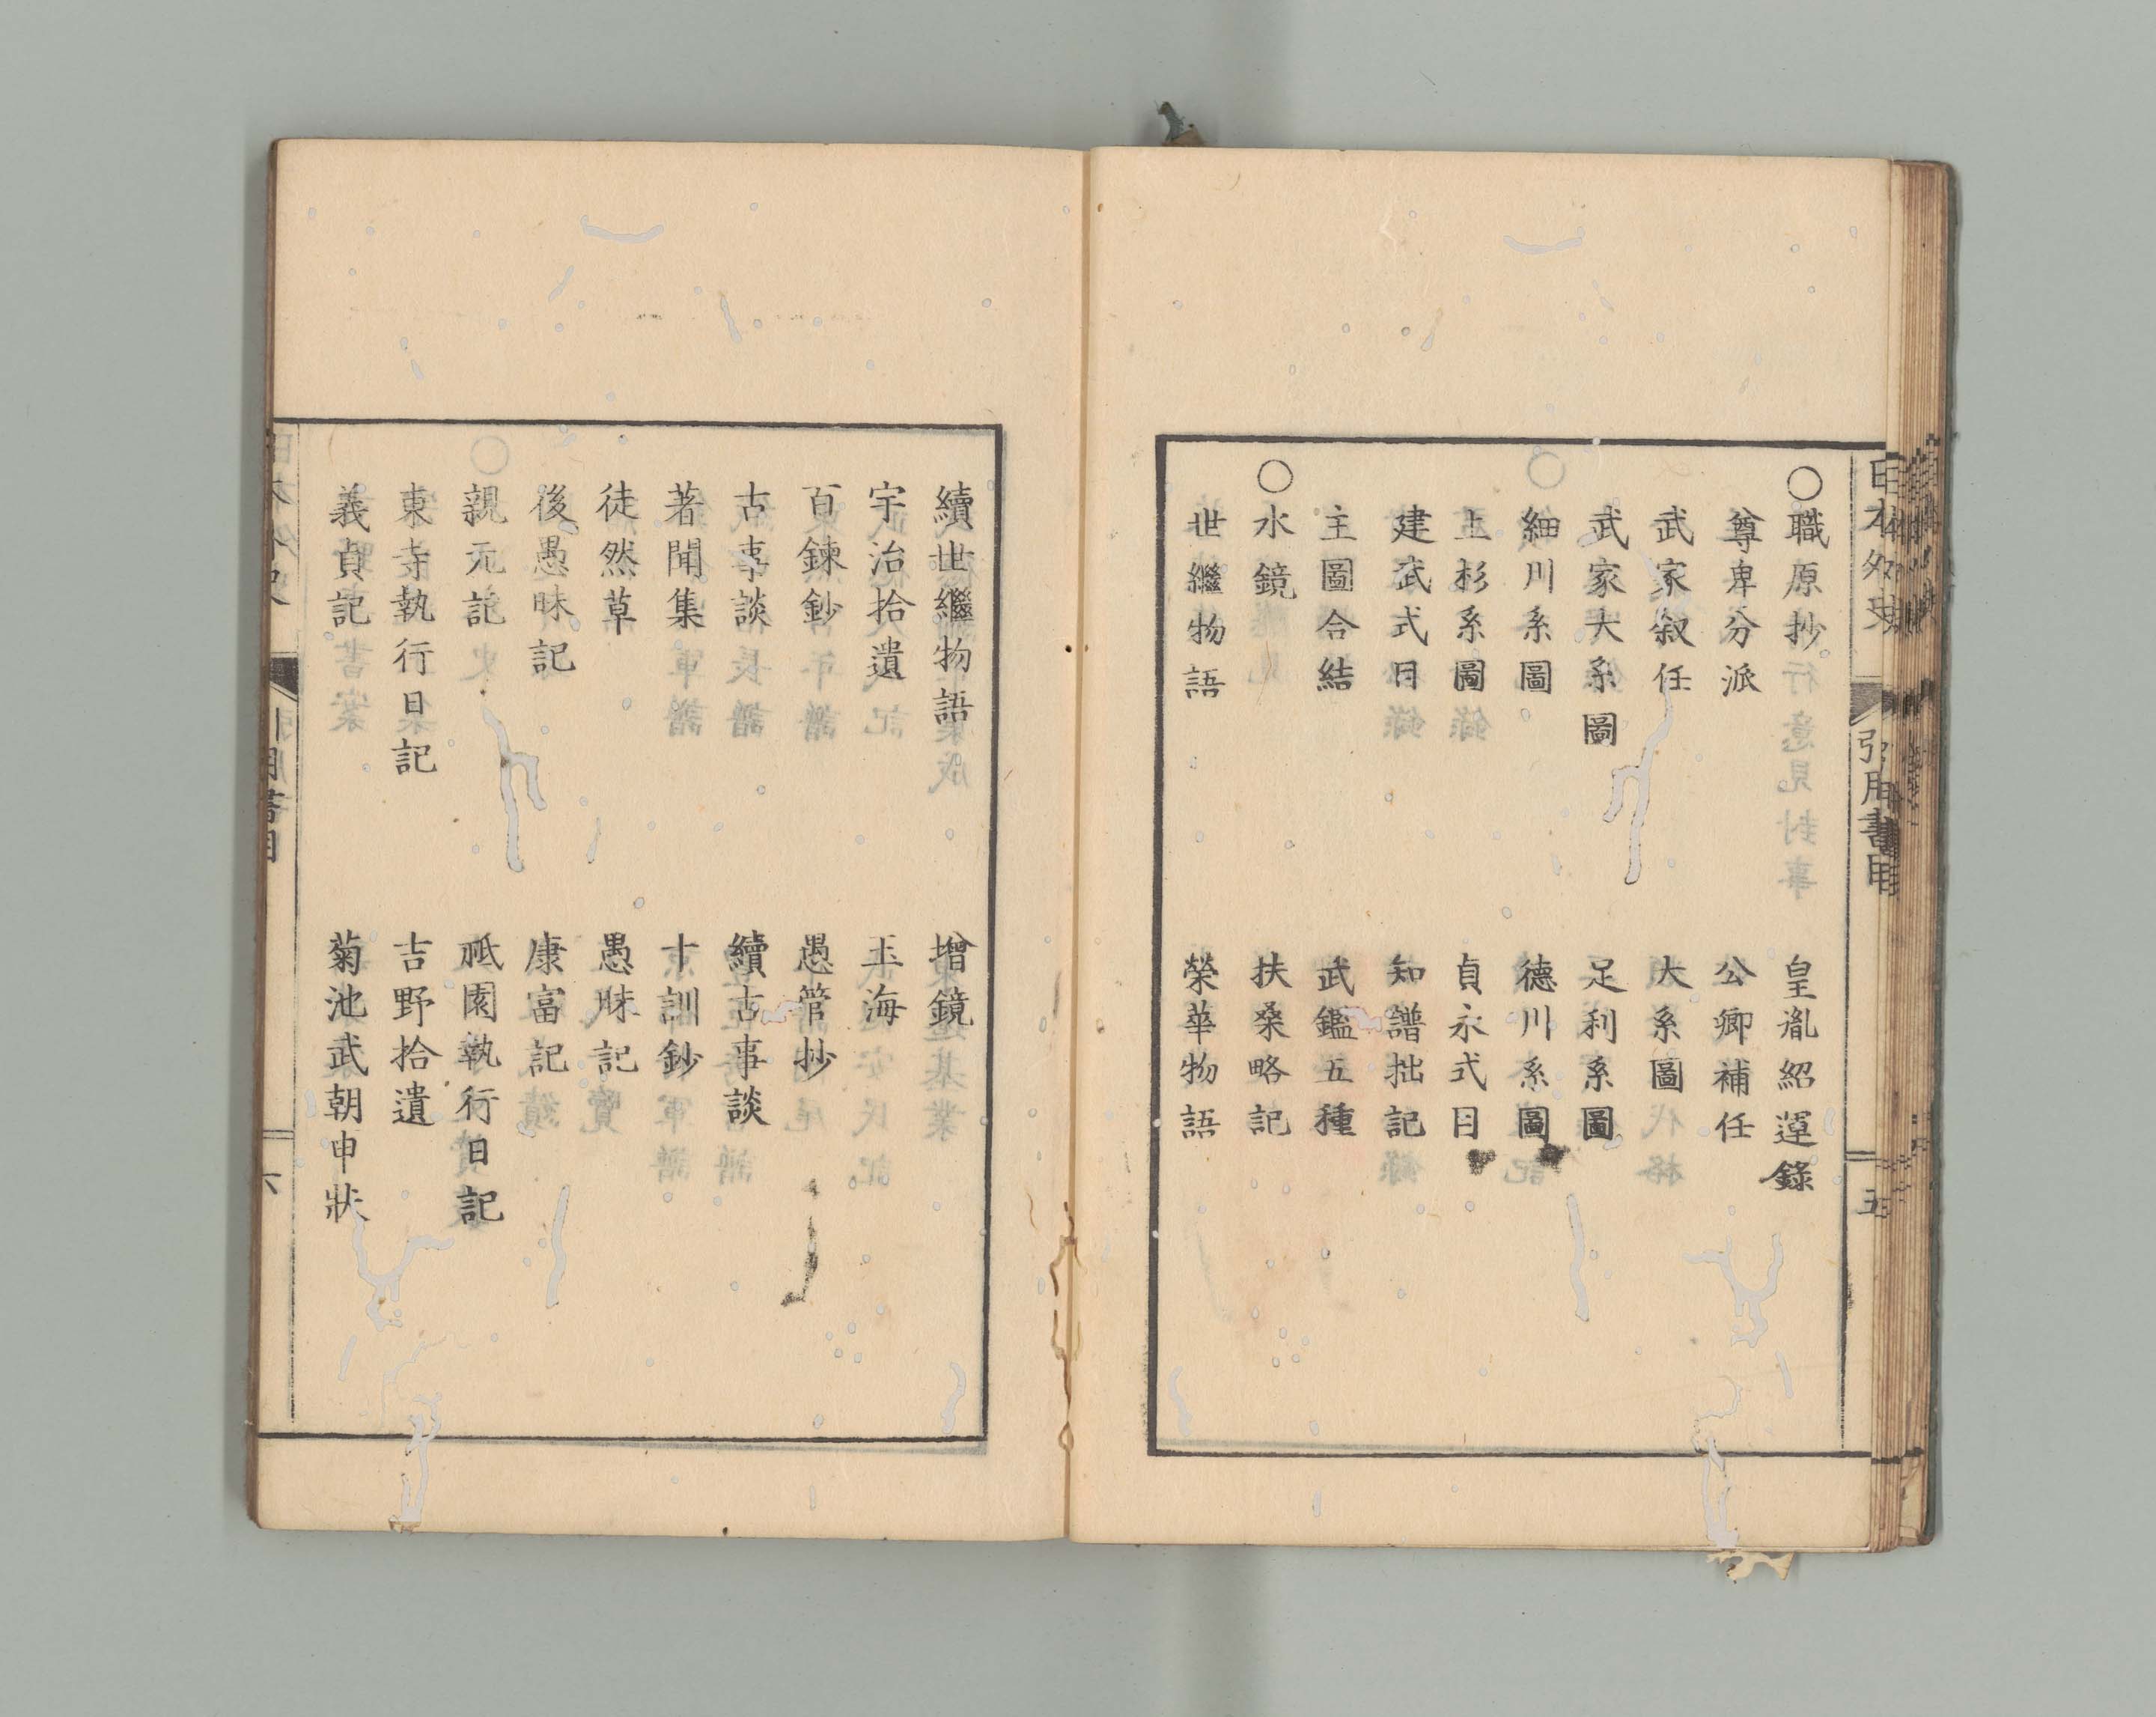 日本外史 引用書目 五
○職原抄 皇胤紹運錄
尊卑分派 公卿補任
武家叙任 大系圖
武家大系圖 足利系圖
細川系圖 德川系圖
上杉系圖 貞永式目
建武式目 知譜拙記
主圖合結 武鑑五種
○水鏡 扶桑略記
世繼物語 榮華物語
續世繼物語 增鏡
宇治拾遺 玉海
百鍊鈔 愚管抄
古事談 續古事談
著聞集 十訓鈔
徒然草 愚昧記
後愚昧記 康富記
親元記 祇園執行日記
東寺執行日記 吉野拾遺
義貞記 菊池武朝申狀
日本外史 引用書目 六